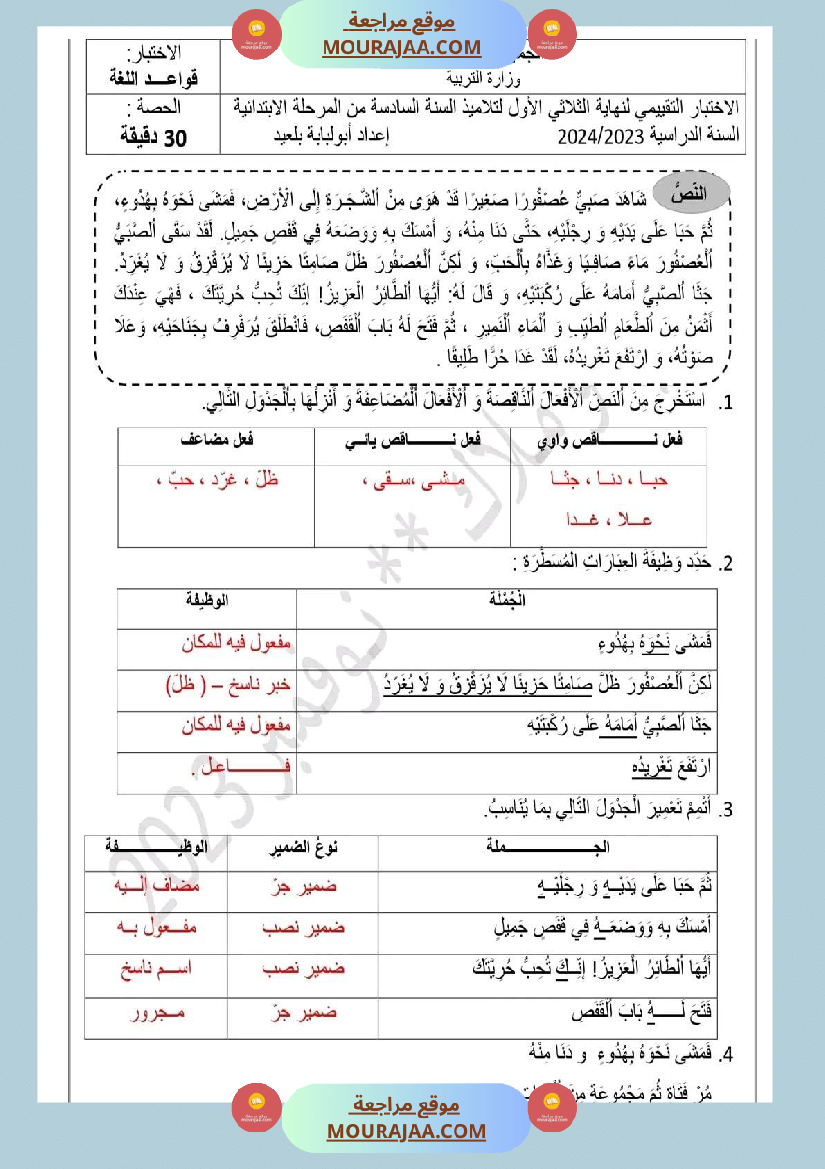 موقع مراجعة
MOURAJAA.COM
الاختبار:
قواعـــد اللغة
وزارة التربية
الحصة :
30 دقيقة
الاختبار التقييمي لنهاية الثلاثي الأول لتلاميذ السنة السادسة من المرحلة الابتدائية
السنة الدراسية 2024/2023 إعداد أبولبابة بلعيد
النّصُّ
شَاهَدَ صَبِيٌّ عُصْفُورًا صَغِيرًا قَدْ هَوَى مِنْ اَلشَّجَرَةِ إِلَى الْأَرْضِ، فَمَشَى نَحْوَهُ بِهُدُوءٍ،
ثُمَّ حَبَا عَلَى يَدَيْهِ وَ رِجْلَيْهِ، حَتَّى دَنَا مِنْهُ، وَ أَمْسَكَ بِهِ وَوَضَعَهُ فِي قَفَصٍ جَمِيلٍ. لَقَدْ سَقَى اَلصَّبِيُّ
اُلْعُصْفُورَ مَاءً صَافِيًا وَغَذَّاهُ بِاُلْحَبِّ، وَ لَكِنَّ اُلْعُصْفُورَ ظَلَّ صَامِتًا حَزِينًا لَا يُزَقْزِقُ وَ لَا يُغَرِّدُ.
جَثَا اُلصَّبِيُّ أَمَامَهُ عَلَى رُكْبَتَيْهِ، وَ قَالَ لَهُ: أَيُّهَا اُلطَّائِرُ الْعَزِيزُ! إِنَّكَ تُحِبُّ حُرِيَّتَكَ ، فَهْيَ عِنْدَكَ
أَثْمَنُ مِنَ اُلطَّعَامِ اُلطَيِّبِ وَ اُلْمَاءِ اُلنَّمِيرِ ، ثُمَّ فَتَحَ لَهُ بَابَ اُلْقَفَصِ، فَانْطَلَقَ يُرَفْرِفُ بِجَنَاحَيْهِ، وَعَلَا
صَوْتُهُ، وَ ارْتَفَعَ تَغْرِيدُهُ، لَقَدْ غَدَا حُرًّا طَلِيقًا .
1. اسْتَخْرِجْ مِنَ اُلنَصِّ اُلْأَفْعَالَ اُلنَّاقِصَةَ وَ اُلْأَفْعَالَ اُلْمُضَاعِفَةَ وَ أَنْزِلْهَا بِالْجَدْوَلِ اُلتَّالِي.
فعل نـــــــــاقص واوي فعل نـــــــــاقص يائـي فعل مضاعف
حبـا ، دنـا ، جثـا مـشى ،سـقى ، ظلّ ، غرّد ، حبّ ،
عـلا ، غـدا
2. حَدِّد وَظِيفَةَ العِبَارَاتِ المُسَطَّرَةِ :
الْجُمْلَة الوظيفة
فَمَشَى نَحْوَهُ بِهُدُوءٍ مفعول فيه للمكان
لَكِنَّ اُلْعُصْفُورَ ظَلَّ صَامِتًا حَزِينًا لَا يُزَقْزِقُ وَ لَا يُغَرِّدُ خبر ناسخ – ( ظلّ)
جَثَا اُلصَّبِيُّ أَمَامَهُ عَلَى رُكْبَتَيْهِ مفعول فيه للمكان
ارْتَفَعَ تَغْرِيدُه فـــــــاعل .
3. أُتْمِمْ تَعْمِيرَ الْجَدْوَلَ التَّالِي بِمَا يُنَاسِبُ.
الجـــــــــــملة نوعُ الضمير الوظيـــــــــفة
ثُمَّ حَبَا عَلَى يَدَيْــهِ وَ رِجْلَيْــهِ ضمير جرّ مضاف إلـيه
أَمْسَكَ بِهِ وَوَضَعَــهُ فِي قَفَصٍ جَمِيلٍ ضمير نصب مفـعول بـه
أَيُّهَا اُلطَّائِرُ الْعَزِيزُ! إِنَّــكَ تُحِبُّ حُرِيَّتَكَ ضمير نصب اسـم ناسخ
فَتَحَ لَــــهُ بَابَ اُلْقَفَصِ ضمير جرّ مـجرور
4. فَمَشَى نَحْوَهُ بِهُدُوءٍ وَ دَنَا مِنْهُ
نوفمبر 2023
موقع مراجعة
MOURAJAA.COM